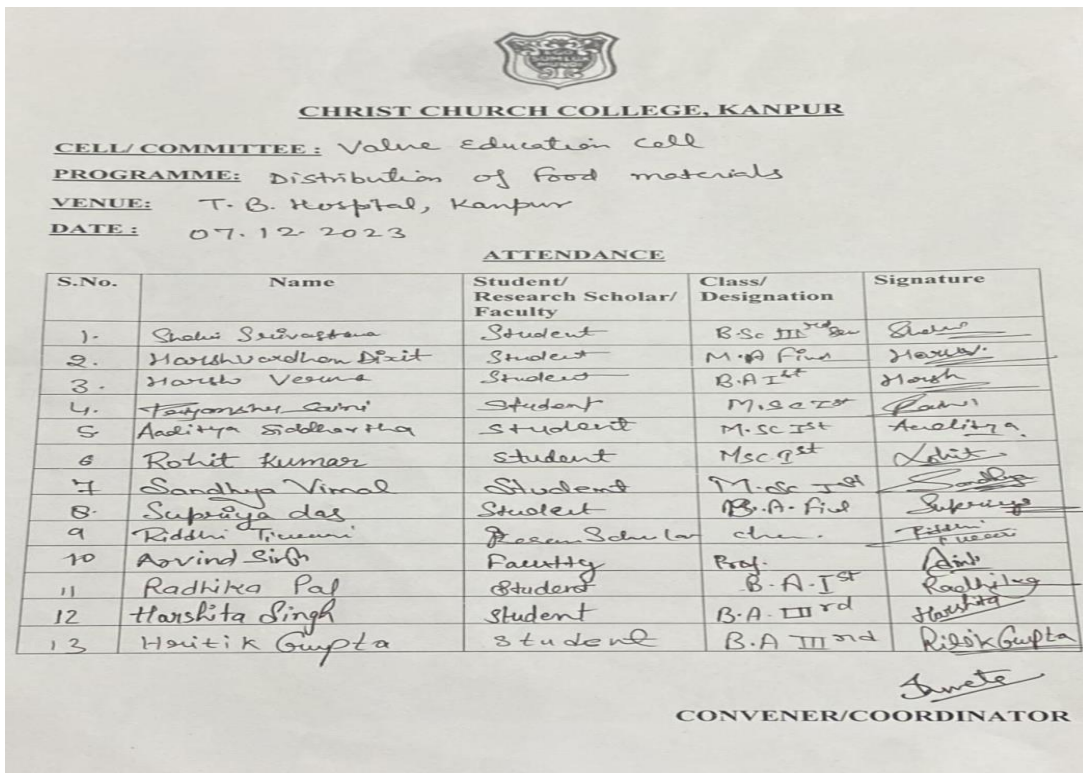 EGO SUM LUX MUNDI
CHRIST CHURCH COLLEGE, KANPUR
CELL/COMMITTEE: Value Education Cell
PROGRAMME: Distribution of food materials
VENUE: T. B. Hospital, Kanpur
DATE: 07.12.2023
ATTENDANCE
S.No. Name Student/ Research Scholar/ Faculty Class/ Designation Signature
1. Shalu Srivastava Student B.Sc III
2. Harshvardhan Dixit Student M.A Final
3. Harsh Verma Student B.A Ist Harsh
4. Saini Student M.Sc Ist
5. Aaditya Siddhartha Student M.SC Ist Aaditya
6 Rohit Kumar Student Msc Ist Rohit
7 Sandhya Vimal Student M.Sc Ist Sandhya
8. Supriya das Student B.A. Supriya
9 Riddhi Tiwari Scholar Riddhi Tiwari
10 Arvind Singh Faculty Prof.
11 Radhika Pal Student B.A.Ist Radhika
12 Harshita Singh Student B.A. III rd Harshita
13 Hritik Gupta Student B.A III nd Ritik Gupta
Shweta
CONVENER/COORDINATOR